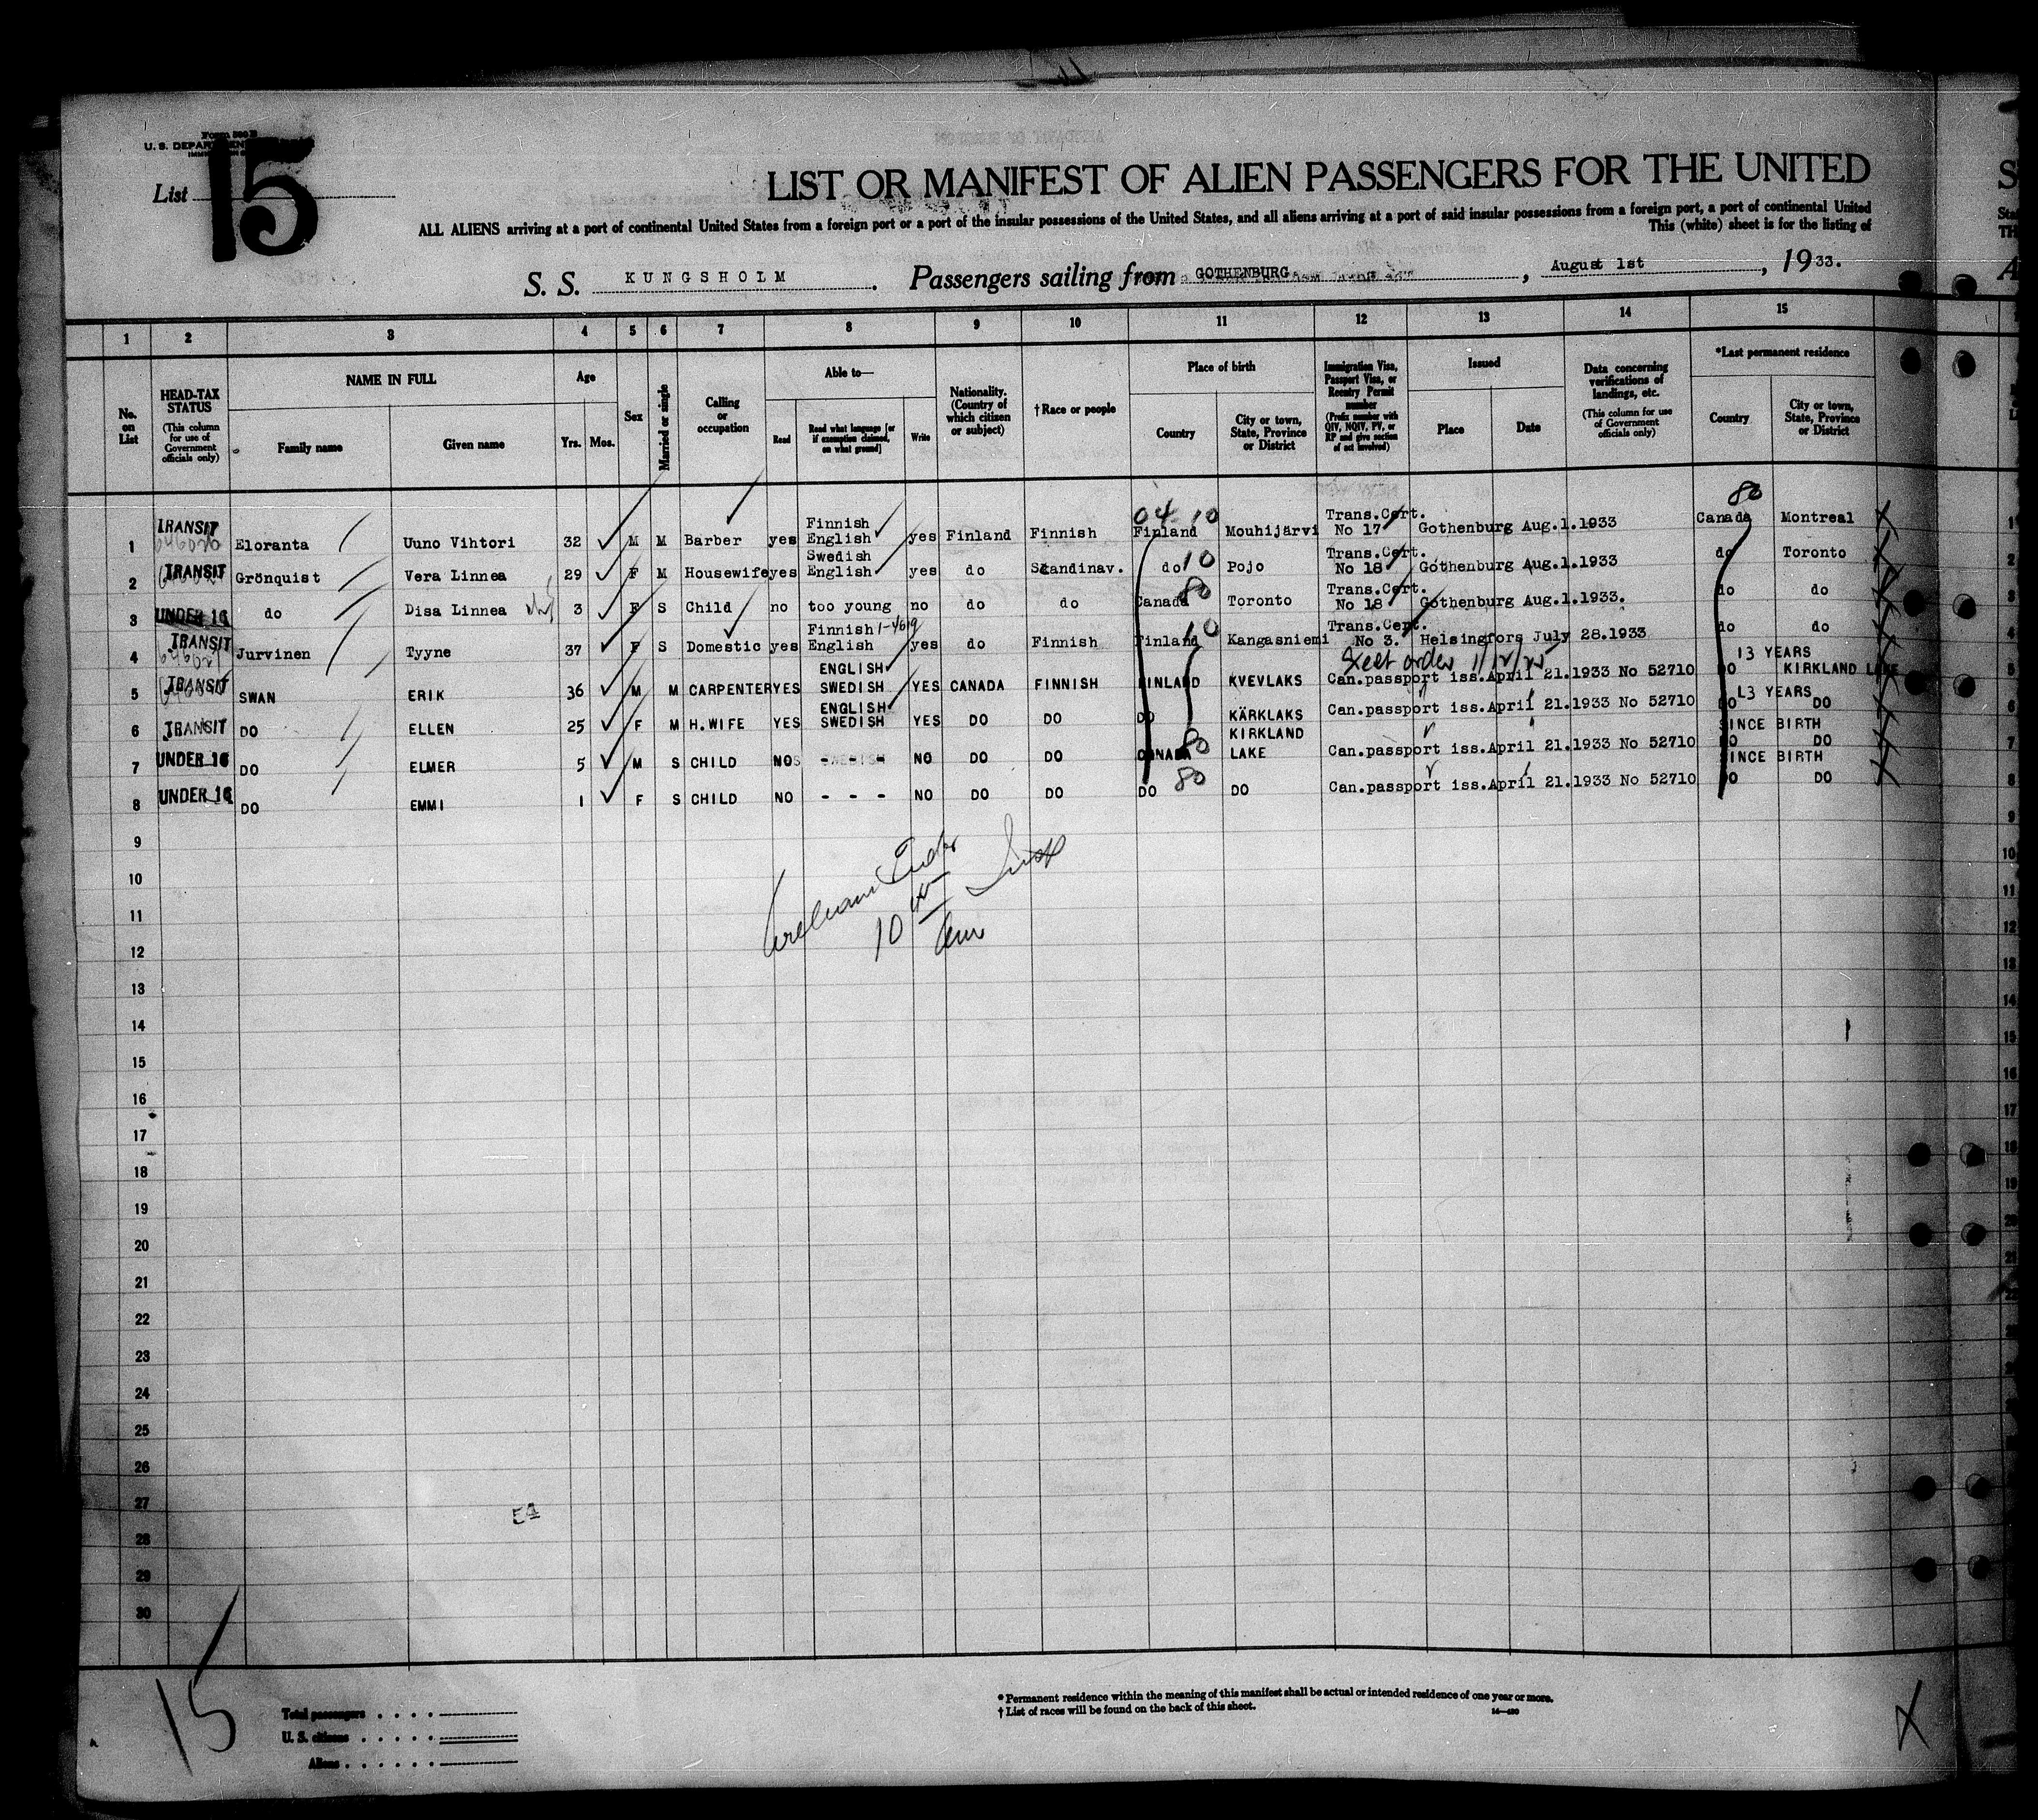 Form 500 B
U. S. DEPARTMENT
List 15
LIST OR MANIFEST OF ALIEN PASSENGERS FOR THE UNITED
ALL ALIENS arriving at a port of continental United States from a foreign port or a port of the insular possessions of the United States, and all aliens arriving at a port of said insular possessions from a foreign port, a port of continental United
This (white) sheet is for the listing of
S. S. KUNGSHOLM. Passengers sailing from GOTHENBURG, August 1st, 1933.
1 2 3 4 5 6 7 8 9 10 11 12 13 14 15
No. on List
HEAD-TAX STATUS (This column for use of Government officials only)
NAME IN FULL Family name Given name
Age Yrs. Mos.
Sex
Married or single
Calling or occupation
Able to— Read Read what language [or if exemption claimed, on what ground] Write
Nationality. (Country of which citizen or subject)
† Race or people
Place of birth Country City or town, State, Province or District
Immigration Visa, Passport Visa, or Reentry Permit number (Prefix number with QIV, NQIV, PV, or RP and give section of act involved)
Issued Place Date
Data concerning verifications of landings, etc. (This column for use of Government officials only)
*Last permanent residence Country City or town, State, Province or District
04 10 80
1 TRANSIT Eloranta Uuno Vihtori 32 M M Barber yes Finnish English yes Finland Finnish Finland Mouhijärvi Trans.Cert. No 17 Gothenburg Aug.1.1933 Canada Montreal
2 TRANSIT Grönquist Vera Linnea 29 F M Housewife yes Swedish English yes do Skandinav. do 10 Pojo Trans.Cert. No 18 Gothenburg Aug.1.1933 do Toronto
3 UNDER 16 do Disa Linnea 3 F S Child no too young no do do Canada 80 Toronto Trans.Cert. No 18 Gothenburg Aug.1.1933. do do
4 TRANSIT Jurvinen Tyyne 37 F S Domestic yes Finnish English yes do Finnish Finland 10 Kangasniemi Trans.Cert. No 3. Helsingfors July 28.1933 do do
5 TRANSIT SWAN ERIK 36 M M CARPENTER YES ENGLISH SWEDISH YES CANADA FINNISH FINLAND KVEVLAKS Can.passport iss.April 21.1933 No 52710 DO 13 YEARS KIRKLAND LAKE
6 TRANSIT DO ELLEN 25 F M H.WIFE YES ENGLISH SWEDISH YES DO DO DO KÄRKLAKS Can.passport iss.April 21.1933 No 52710 DO 13 YEARS DO
7 UNDER 16 DO ELMER 5 M S CHILD NO - - - NO DO DO CANADA 80 KIRKLAND LAKE Can.passport iss.April 21.1933 No 52710 SINCE BIRTH DO DO
8 UNDER 16 DO EMMI 1 F S CHILD NO - - - NO DO DO DO 80 DO Can.passport iss.April 21.1933 No 52710 SINCE BIRTH DO DO
9
10
11
12
13
14
15
16
17
18
19
20
21
22
23
24
25
26
27
28
29
30
15
Total passengers
U. S. citizens
Aliens
* Permanent residence within the meaning of this manifest shall be actual or intended residence of one year or more.
† List of races will be found on the back of this sheet.